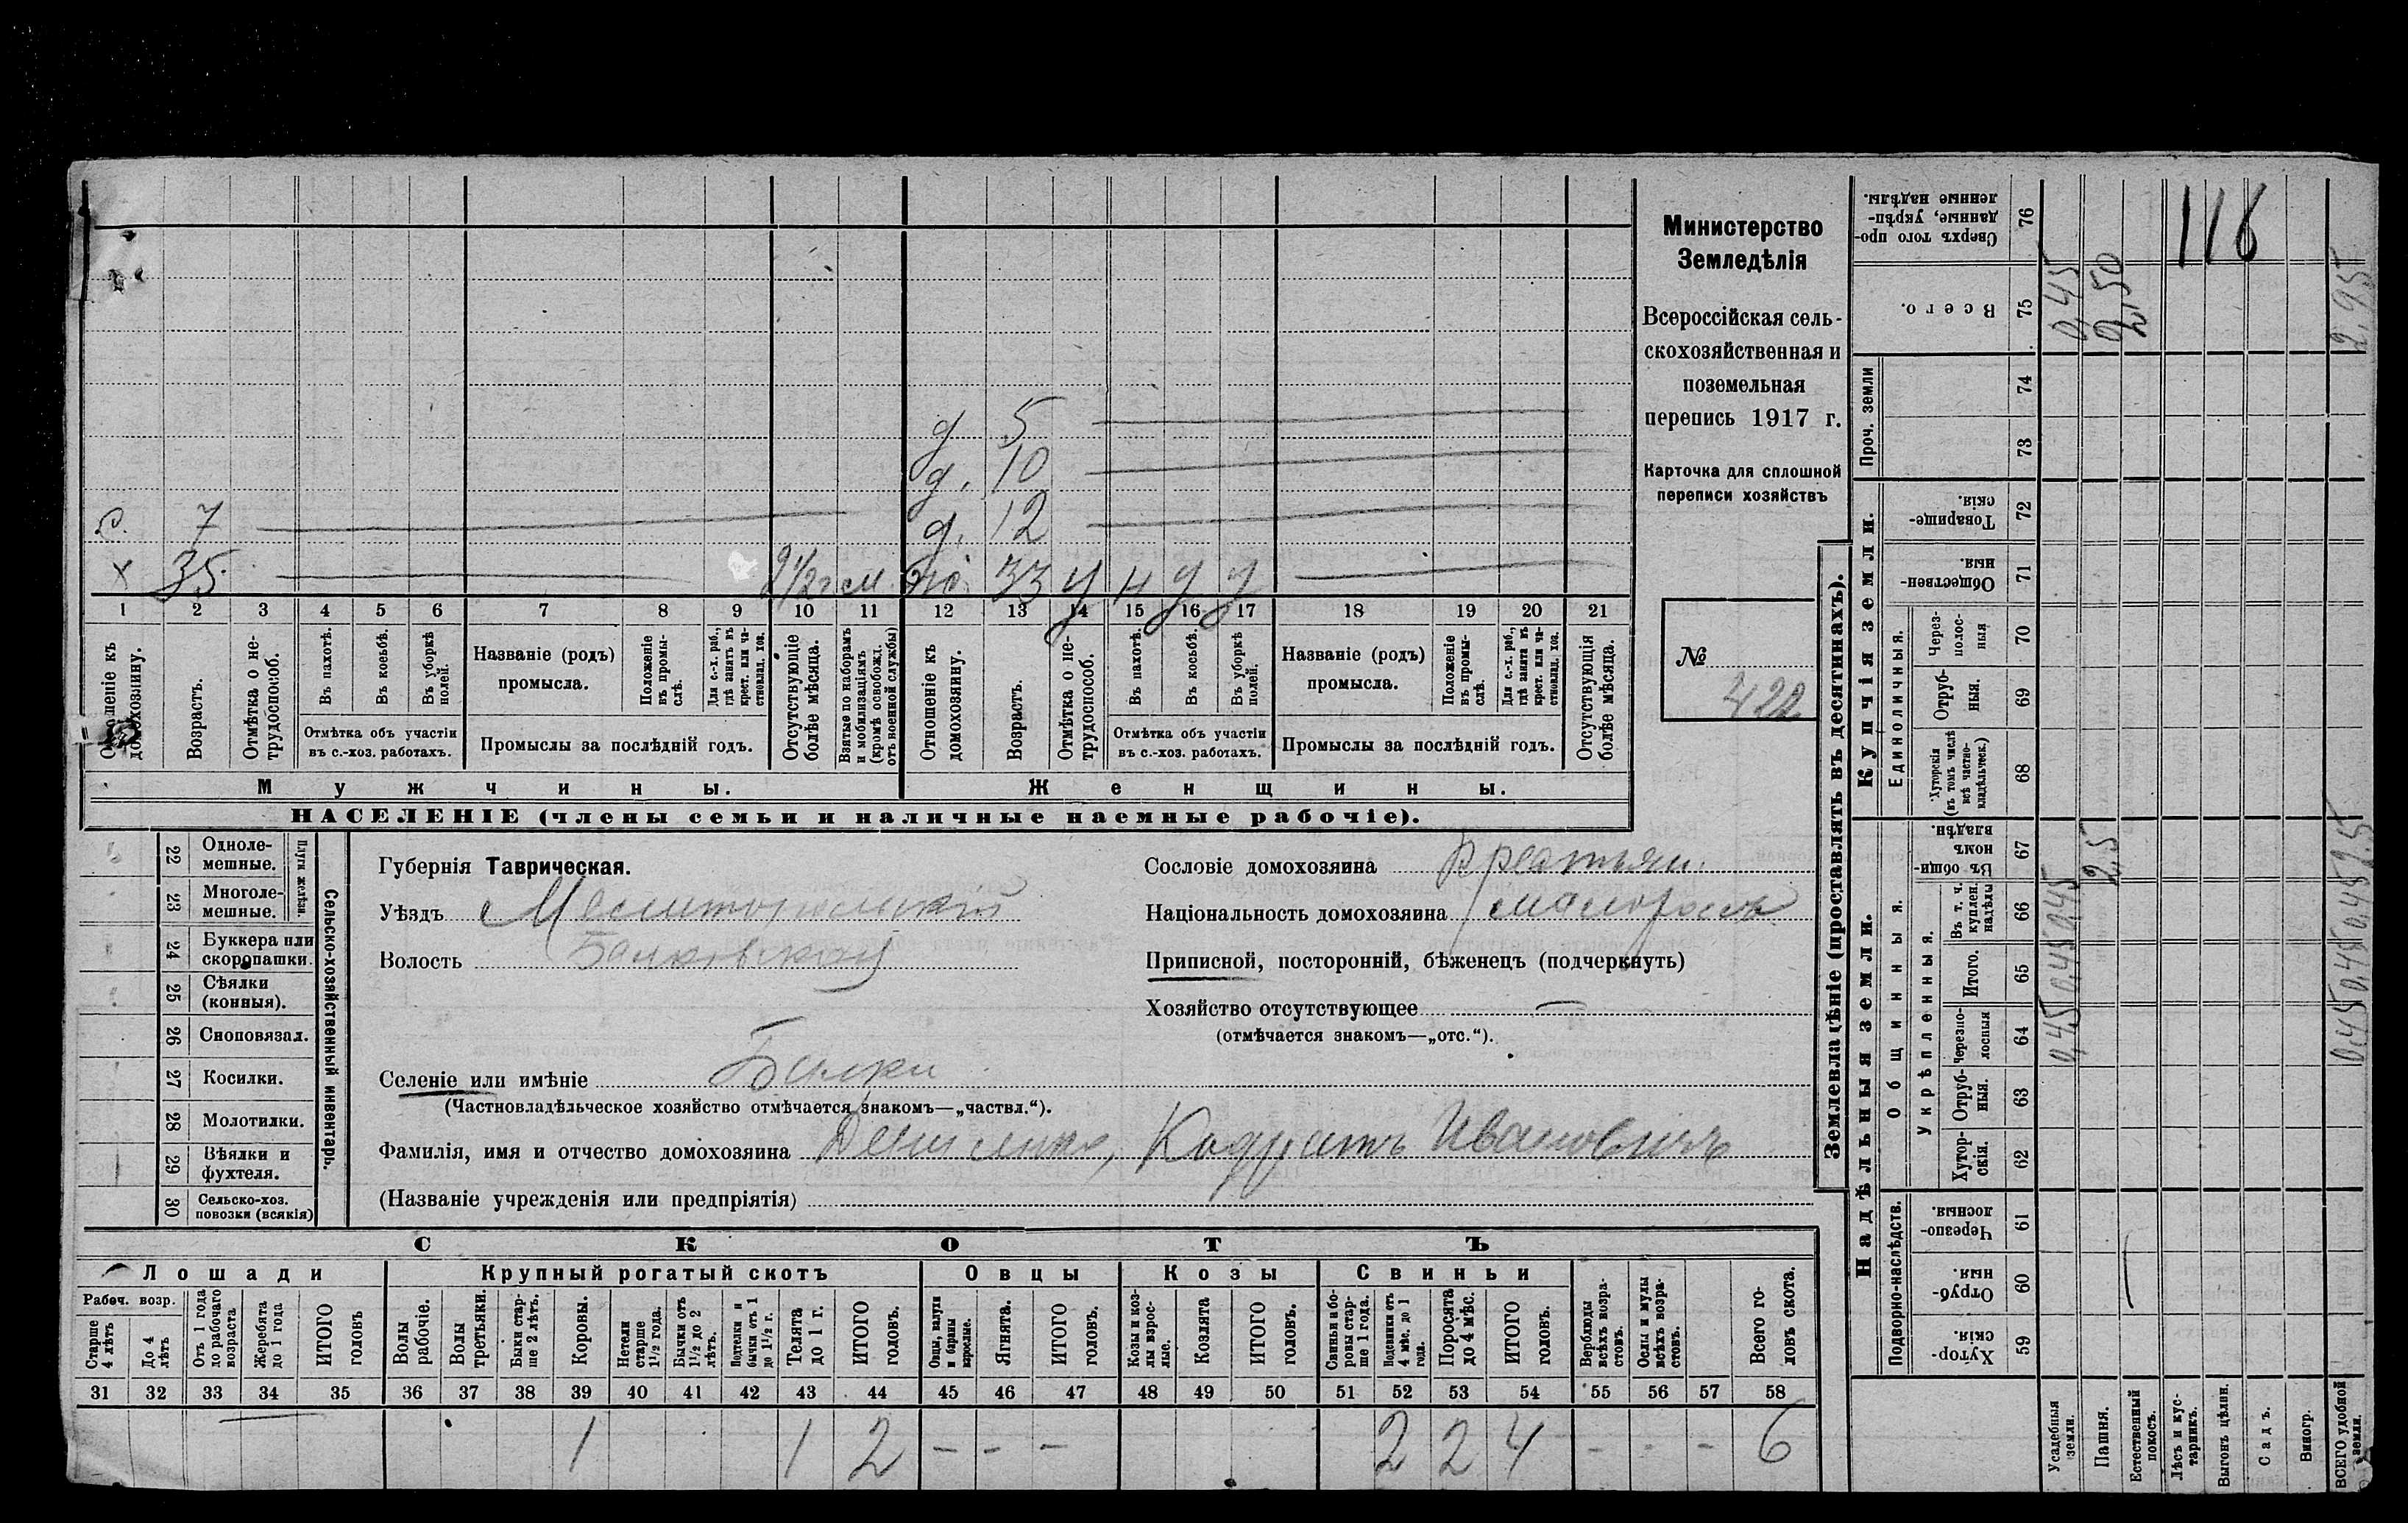 д 5
д. 10
с. 7
д. 12
х 35 2 1/2 г м. ж. 33 у н у у
1 2 3 4 5 6 7 8 9 10 11 12 13 14 15 16 17 18 19 20 21
Отношеніе къ домохозяину.
Возрастъ.
Отмѣтка о не-
трудоспособ.
Въ пахотѣ.
Въ косьбѣ.
Въ уборкѣ
полей.
Отмѣтка объ участіи
въ с.-хоз. работахъ.
Названіе (родъ)
промысла.
Положеніе
въ промы-
слѣ.
Для с.-х. раб.,
гдѣ занятъ въ
крест. или ча-
стновлад. хоз.
Промыслы за послѣдній годъ.
Отсутствующіе
болѣе мѣсяца.
Взятые по наборамъ
и мобилизаціямъ
(кромѣ освобожд.
отъ военной службы)
Отношеніе къ
домохозяину.
Возрастъ.
Отмѣтка о не-
трудоспособ.
Въ пахотѣ.
Въ косьбѣ.
Въ уборкѣ
полей.
Отмѣтка объ участіи
въ с.-хоз. работахъ.
Названіе (родъ)
промысла.
Положеніе
въ промы-
слѣ.
Для с.-х. раб.,
гдѣ занята въ
крест. или ча-
стновлад. хоз.
Промыслы за послѣдній годъ.
Отсутствующія
болѣе мѣсяца.
Мужчины.
Женщины.
НАСЕЛЕНІЕ (члены семьи и наличные наемные рабочіе).
Министерство
Земледѣлія
Всероссійская сель-
скохозяйственная и
поземельная
перепись 1917 г.
Карточка для сплошной
переписи хозяйствъ
№
422
22 Однолe-
мешные.
23 Многоле-
мешные.
Плуги желѣзн.
24 Буккера или
скоропашки.
25 Сѣялки
(конныя).
26 Сноповязал.
27 Косилки.
28 Молотилки.
29 Вѣялки и
фухтеля.
30 Сельско-хоз.
повозки (всякія)
Сельско-хозяйственный инвентарь.
Губернія Таврическая.
Уѣздъ Мелитопольскій
Волость Балковская
Селеніе или имѣніе Балки
(Частновладѣльческое хозяйство отмѣчается знакомъ—„частвл.“).
Фамилія, имя и отчество домохозяина Денисенко, Кодратъ Ивановичъ
(Названіе учрежденія или предпріятія)
Сословіе домохозяина крестьян.
Національность домохозяина малороссъ
Приписной, посторонній, бѣженецъ (подчеркнуть)
Хозяйство отсутствующее —
(отмѣчается знакомъ—„отс.“).
СКОТЪ
Лошади
Крупный рогатый скотъ
Овцы
Козы
Свиньи
Рабоч. возр.
Старше
4 лѣтъ
До 4
лѣтъ
Отъ 1 года
до рабочаго
возраста
Жеребята
до 1 года
ИТОГО
головъ
Волы
рабочіе.
Волы
третьяки.
Быки стар-
ше 2 лѣтъ.
Коровы.
Нетели
старше
1½ года.
Бычки отъ
1½ до 2
лѣтъ.
Подтелки и
бычки отъ 1
до 1½ г.
Телята
до 1 г.
ИТОГО
головъ.
Овцы, валухи
и бараны
взрослые.
Ягнята.
ИТОГО
головъ.
Козы и коз-
лы взрос-
лые.
Козлята
ИТОГО
головъ.
Свиньи и бо-
ровы стар-
ше 1 года.
Подсвинки отъ
4 мѣс. до 1
года.
Поросята
до 4 мѣс.
ИТОГО
головъ.
Верблюды
всѣхъ возра-
стовъ.
Ослы и мулы
всѣхъ возра-
стовъ.
Всего го-
ловъ скота.
31 32 33 34 35 36 37 38 39 40 41 42 43 44 45 46 47 48 49 50 51 52 53 54 55 56 57 58
— 1 1 2 – – – 2 2 4 - - - 6
Землевладѣніе (проставлять въ десятинахъ).
Надѣльныя земли.
Купчія земли.
Проч. земли
Подворно-наслѣдств.
Общинныя.
Укрѣпленныя.
Единоличныя.
Сверхъ того про-
данные, укрѣп-
ленные надѣлы.
76
Всего.
75
74
73
Товарище-
скія.
72
Обществен-
ныя.
71
Через-
полос-
ныя
70
Отруб-
ныя.
69
Хуторскія
(въ томъ числѣ
всѣ частно-
владѣльческ.)
68
Въ общин-
номъ
владѣн.
67
Въ т. ч.
куплен.
надѣлы
66
Итого.
65
Черезпо-
лосныя
64
Отруб-
ныя.
63
Хутор-
скія.
62
Черезпо-
лосныя.
61
Отруб-
ныя.
60
Хутор-
скія.
59
Усадебныя
земли.
Пашня.
Естественный
покосъ.
Лѣсъ и кус-
тарникъ.
Выгонъ цѣлин.
Садъ.
Виногр.
ВСЕГО удобной
земли.
116
0,45 0,45 0,45 0,45
2,5 2,50
0,45 0,45 0,45 2,5 2,95